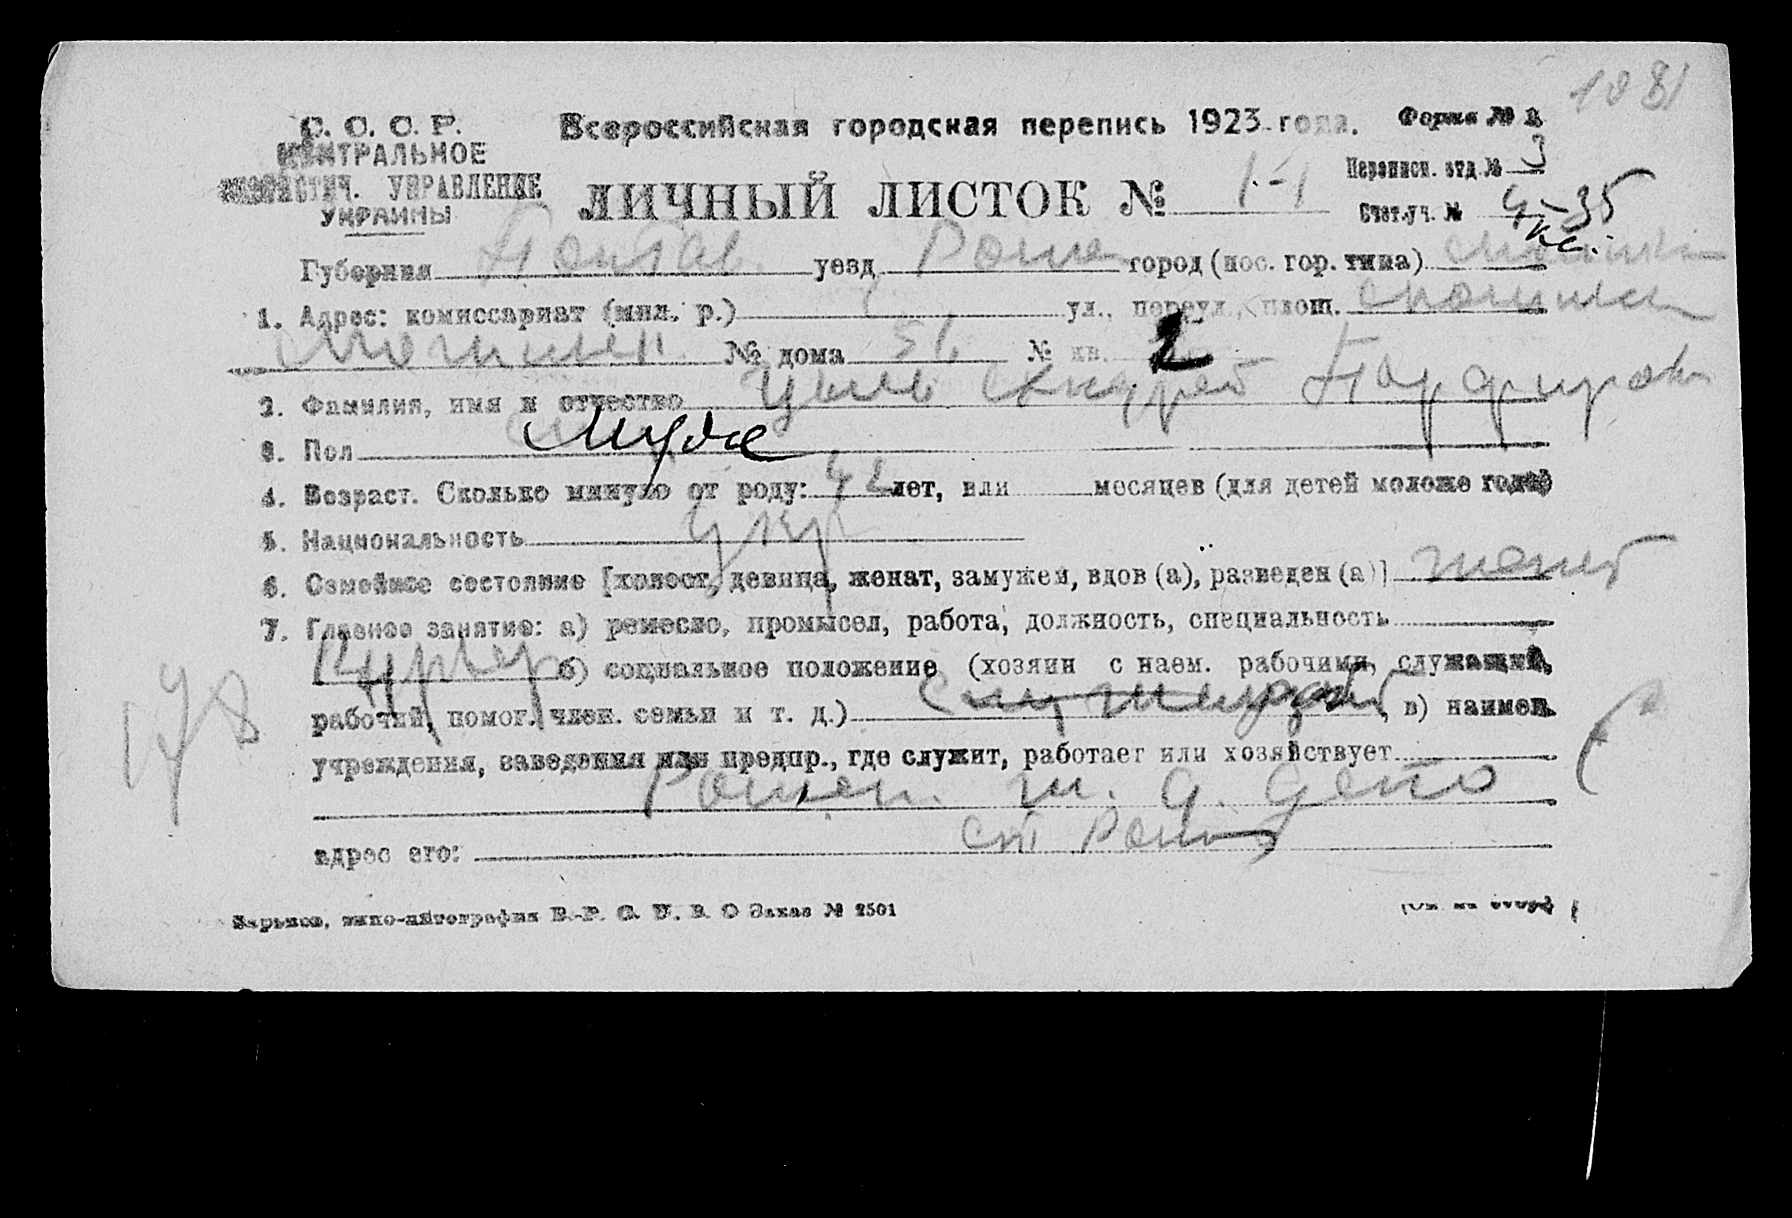 1081
С. С. С. Р.
ЦЕНТРАЛЬНОЕ
СТАТИСТИЧ. УПРАВЛЕНИЕ
УКРАИНЫ
Всероссийская городская перепись 1923 года.
Форма № 3
Переписн. отд. № 3
ЛИЧНЫЙ ЛИСТОК № 1-1
Счет. уч. № 4-35
Губерния Полтав. уезд Ромен город (пос. гор. типа)
1. Адрес: комиссариат (мил. р.) ул., переул., площ.
№ дома 51 № кв. 2
2. Фамилия, имя и отчество Андрей Парфиров
3. Пол Муж
4. Возраст. Сколько минуло от роду: 42 лет, или месяцев (для детей моложе года)
5. Национальность Укр
6. Семейное состояние [холост, девица, женат, замужем, вдов (а), разведен (а)] женат
7. Главное занятие: а) ремесло, промысел, работа, должность, специальность
б) социальное положение (хозяин с наем. рабочими, служащий,
рабочий, помог. член. семьи и т. д.) в) наимен.
178
учреждения, заведения или предпр., где служит, работает или хозяйствует
Ромен. ж. д. депо
адрес его: ст Ромны
Харьков, типо-литография Заказ № 2501